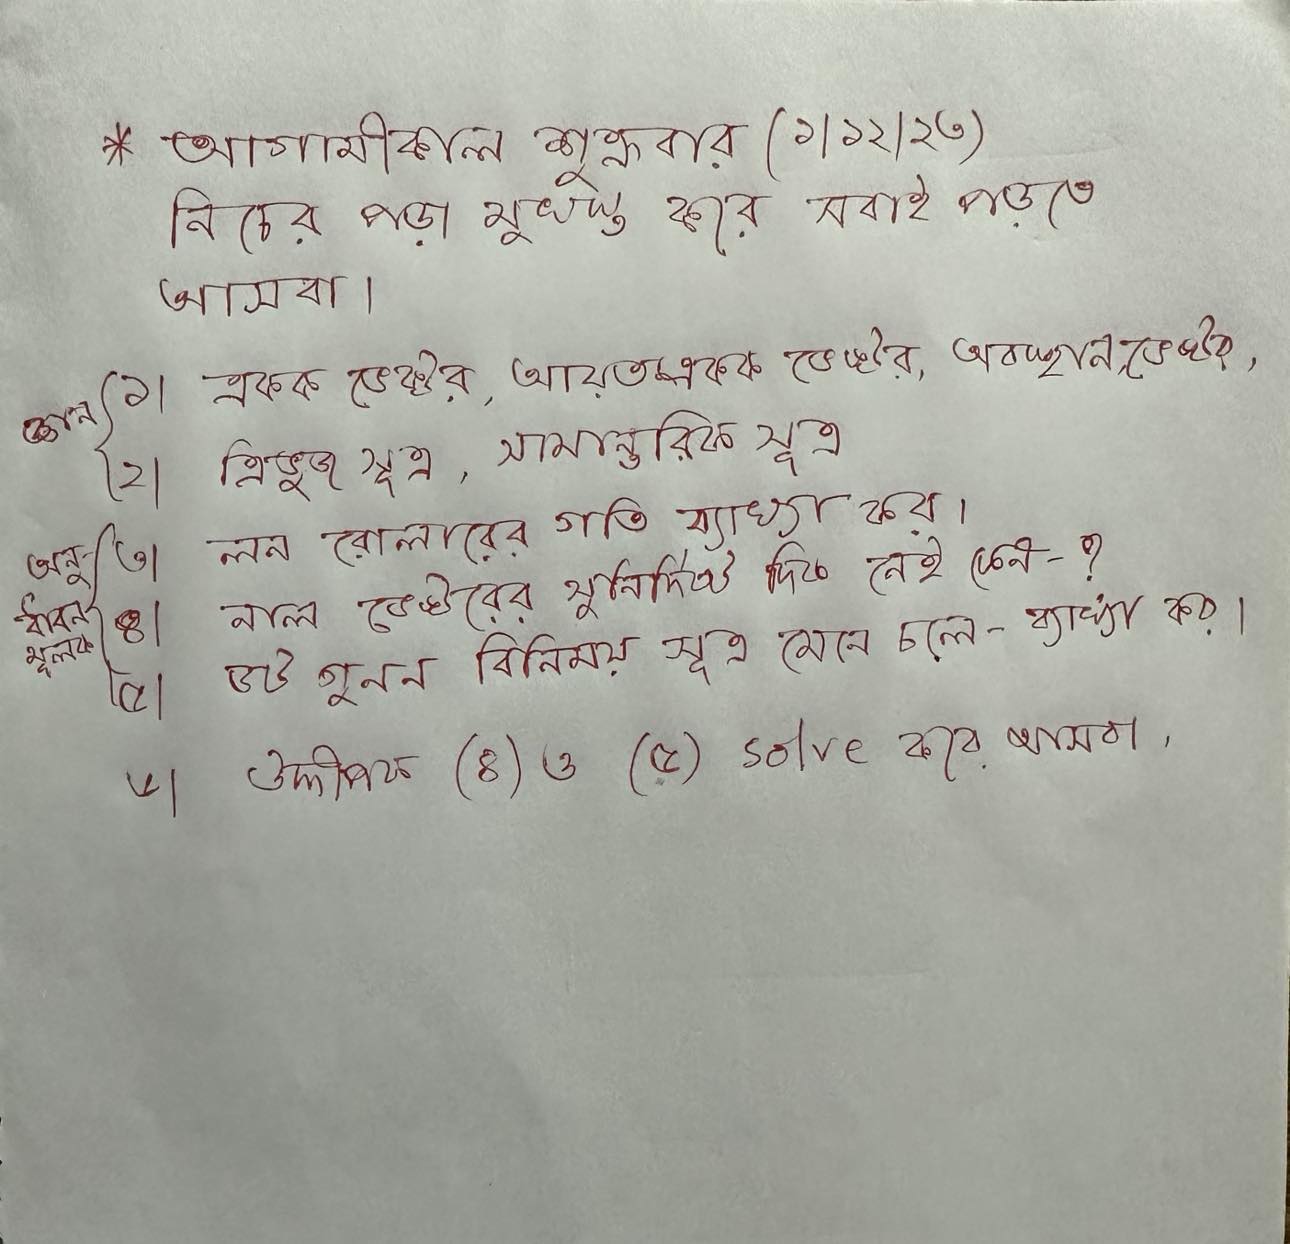 * আগামীকাল শুক্রবার (১/১২/২৩)
নিচের পড়া মুখস্ত করে সবাই পড়তে
আসবা।
জ্ঞান ১। একক ভেক্টর, আয়ত একক ভেক্টর, অবস্থান ভেক্টর,
২। ত্রিভুজ সূত্র, সামান্তরিক সূত্র
অনু- ৩। লন রোলারের গতি ব্যাখ্যা কর।
ধাবন ৪। নাল ভেক্টরের সুনির্দিষ্ট দিক নেই কেন-?
মূলক ৫। ডট গুনন বিনিময় সূত্র মেনে চলে- ব্যাখ্যা কর।
৬। উদ্দীপক (৪) ও (৫) solve করে আসবা,